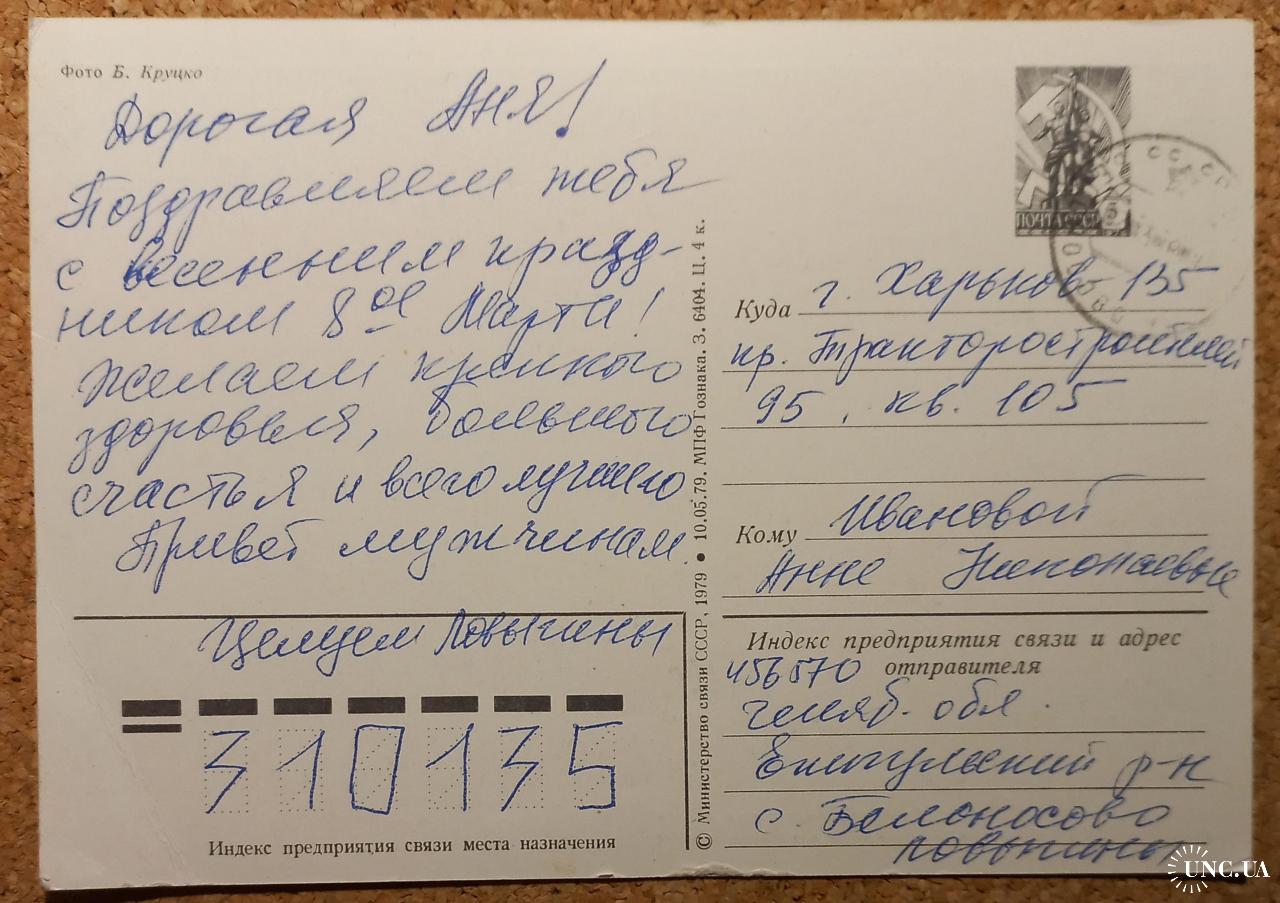 Фото Б. Круцко
Дорогая Аня!
Поздравляем тебя
с весенним празд-
ником 8ое Марта!
Желаем крепкого
здоровья, большого
счастья и всего лучшего
Привет мужчинам.
Целуем Ловыгины
310135
Индекс предприятия связи места назначения
© Министерство связи СССР, 1979 ● 10.05.79. МПФ Гознака. З. 6404. Ц. 4 к.
ПОЧТА СССР 5
СССР
Куда г. Харьков-135
пр. Тракторостроителей
95, кв. 105
Кому Ивановой
Анне Николаевне
Индекс предприятия связи и адрес
отправителя
456570
Челяб. обл.
Еткульский р-н
с. Белоносово
Ловыгины
UNC.UA